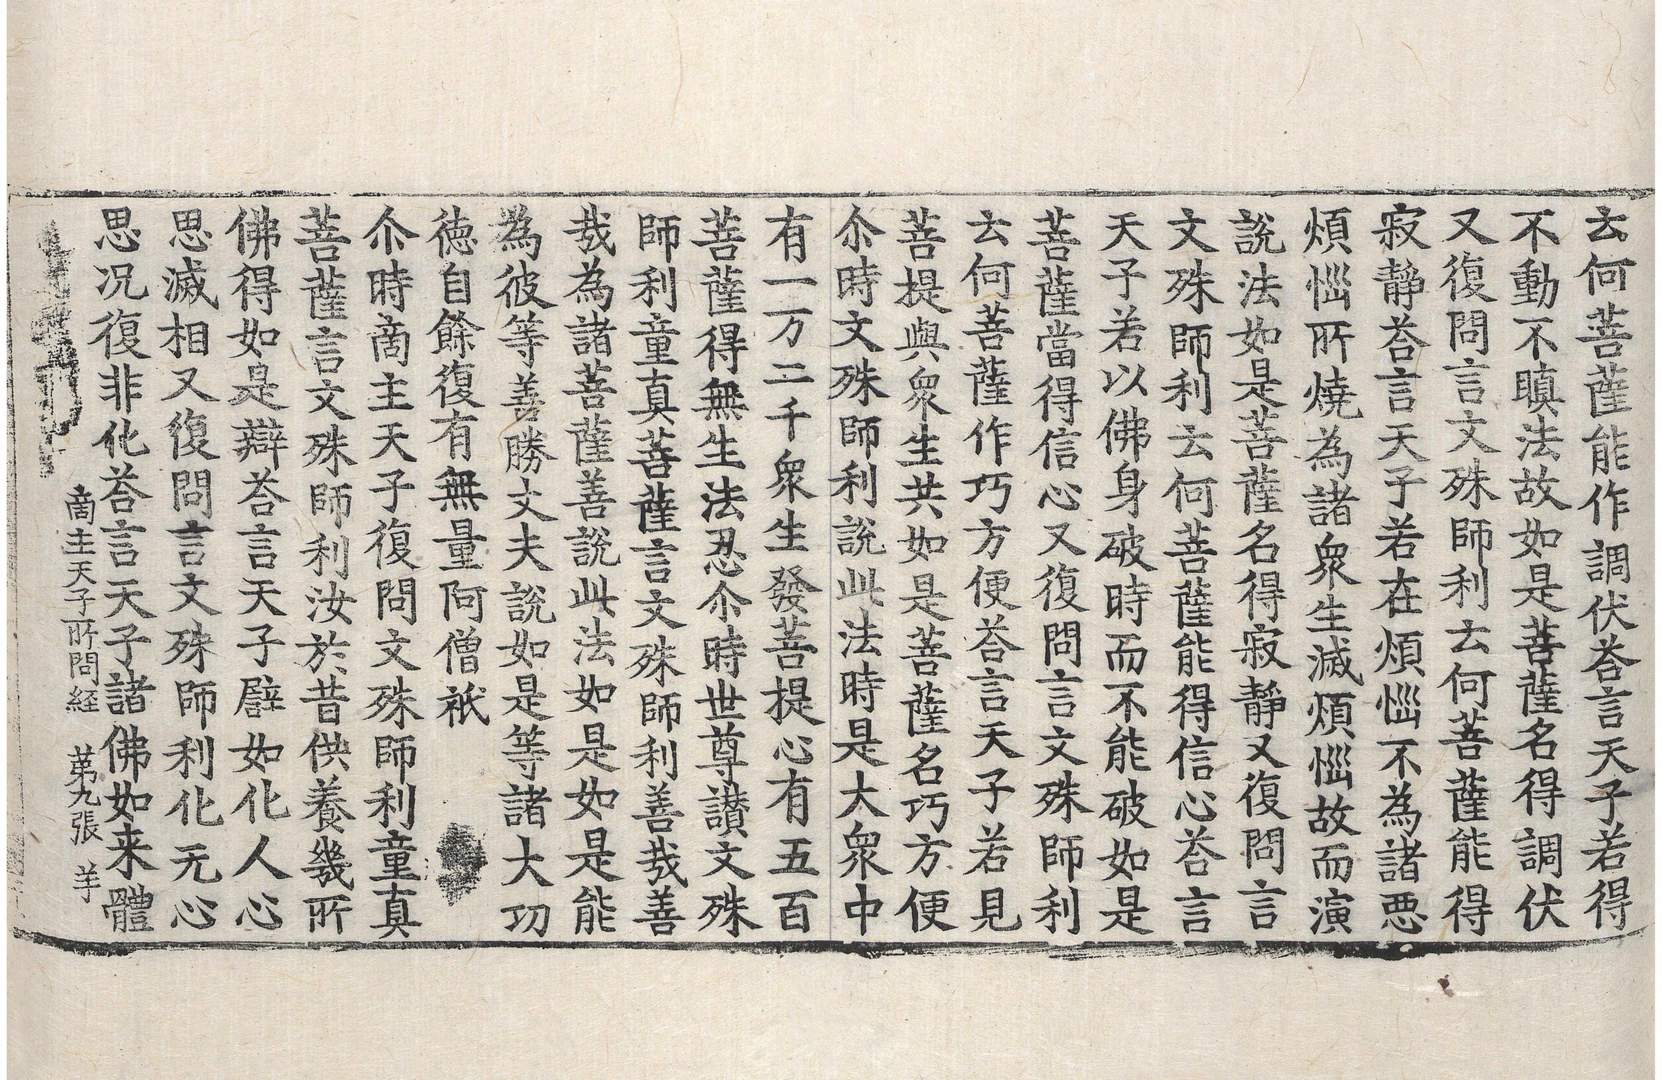 云何菩薩能作調伏荅言天子若得
不動不瞋法故如是菩薩名得調伏
又復問言文殊師利云何菩薩能得
寂静荅言天子若在煩惱不為諸惡
煩惱所燒為諸衆生滅煩惱故而演
說法如是菩薩名得寂静又復問言
文殊師利云何菩薩能得信心荅言
天子若以佛身破時而不能破如是
菩薩當得信心又復問言文殊師利
云何菩薩作巧方便荅言天子若見
菩提與衆生共如是菩薩名巧方便
尒時文殊師利說此法時是大衆中
有一万二千衆生發菩提心有五百
菩薩得無生法忍尒時世尊讃文殊
師利童真菩薩言文殊師利善㢤善
㢤為諸菩薩善說此法如是如是能
為彼等善勝丈夫說如是等諸大功
徳自餘復有無量阿僧祇
尒時啇主天子復問文殊師利童真
菩薩言文殊師利汝於昔供養幾所
佛得如是辯荅言天子譬如化人心
思滅相又復問言文殊師利化无心
思况復非化荅言天子諸佛如来體
啇主天子所問経 苐九張 羊